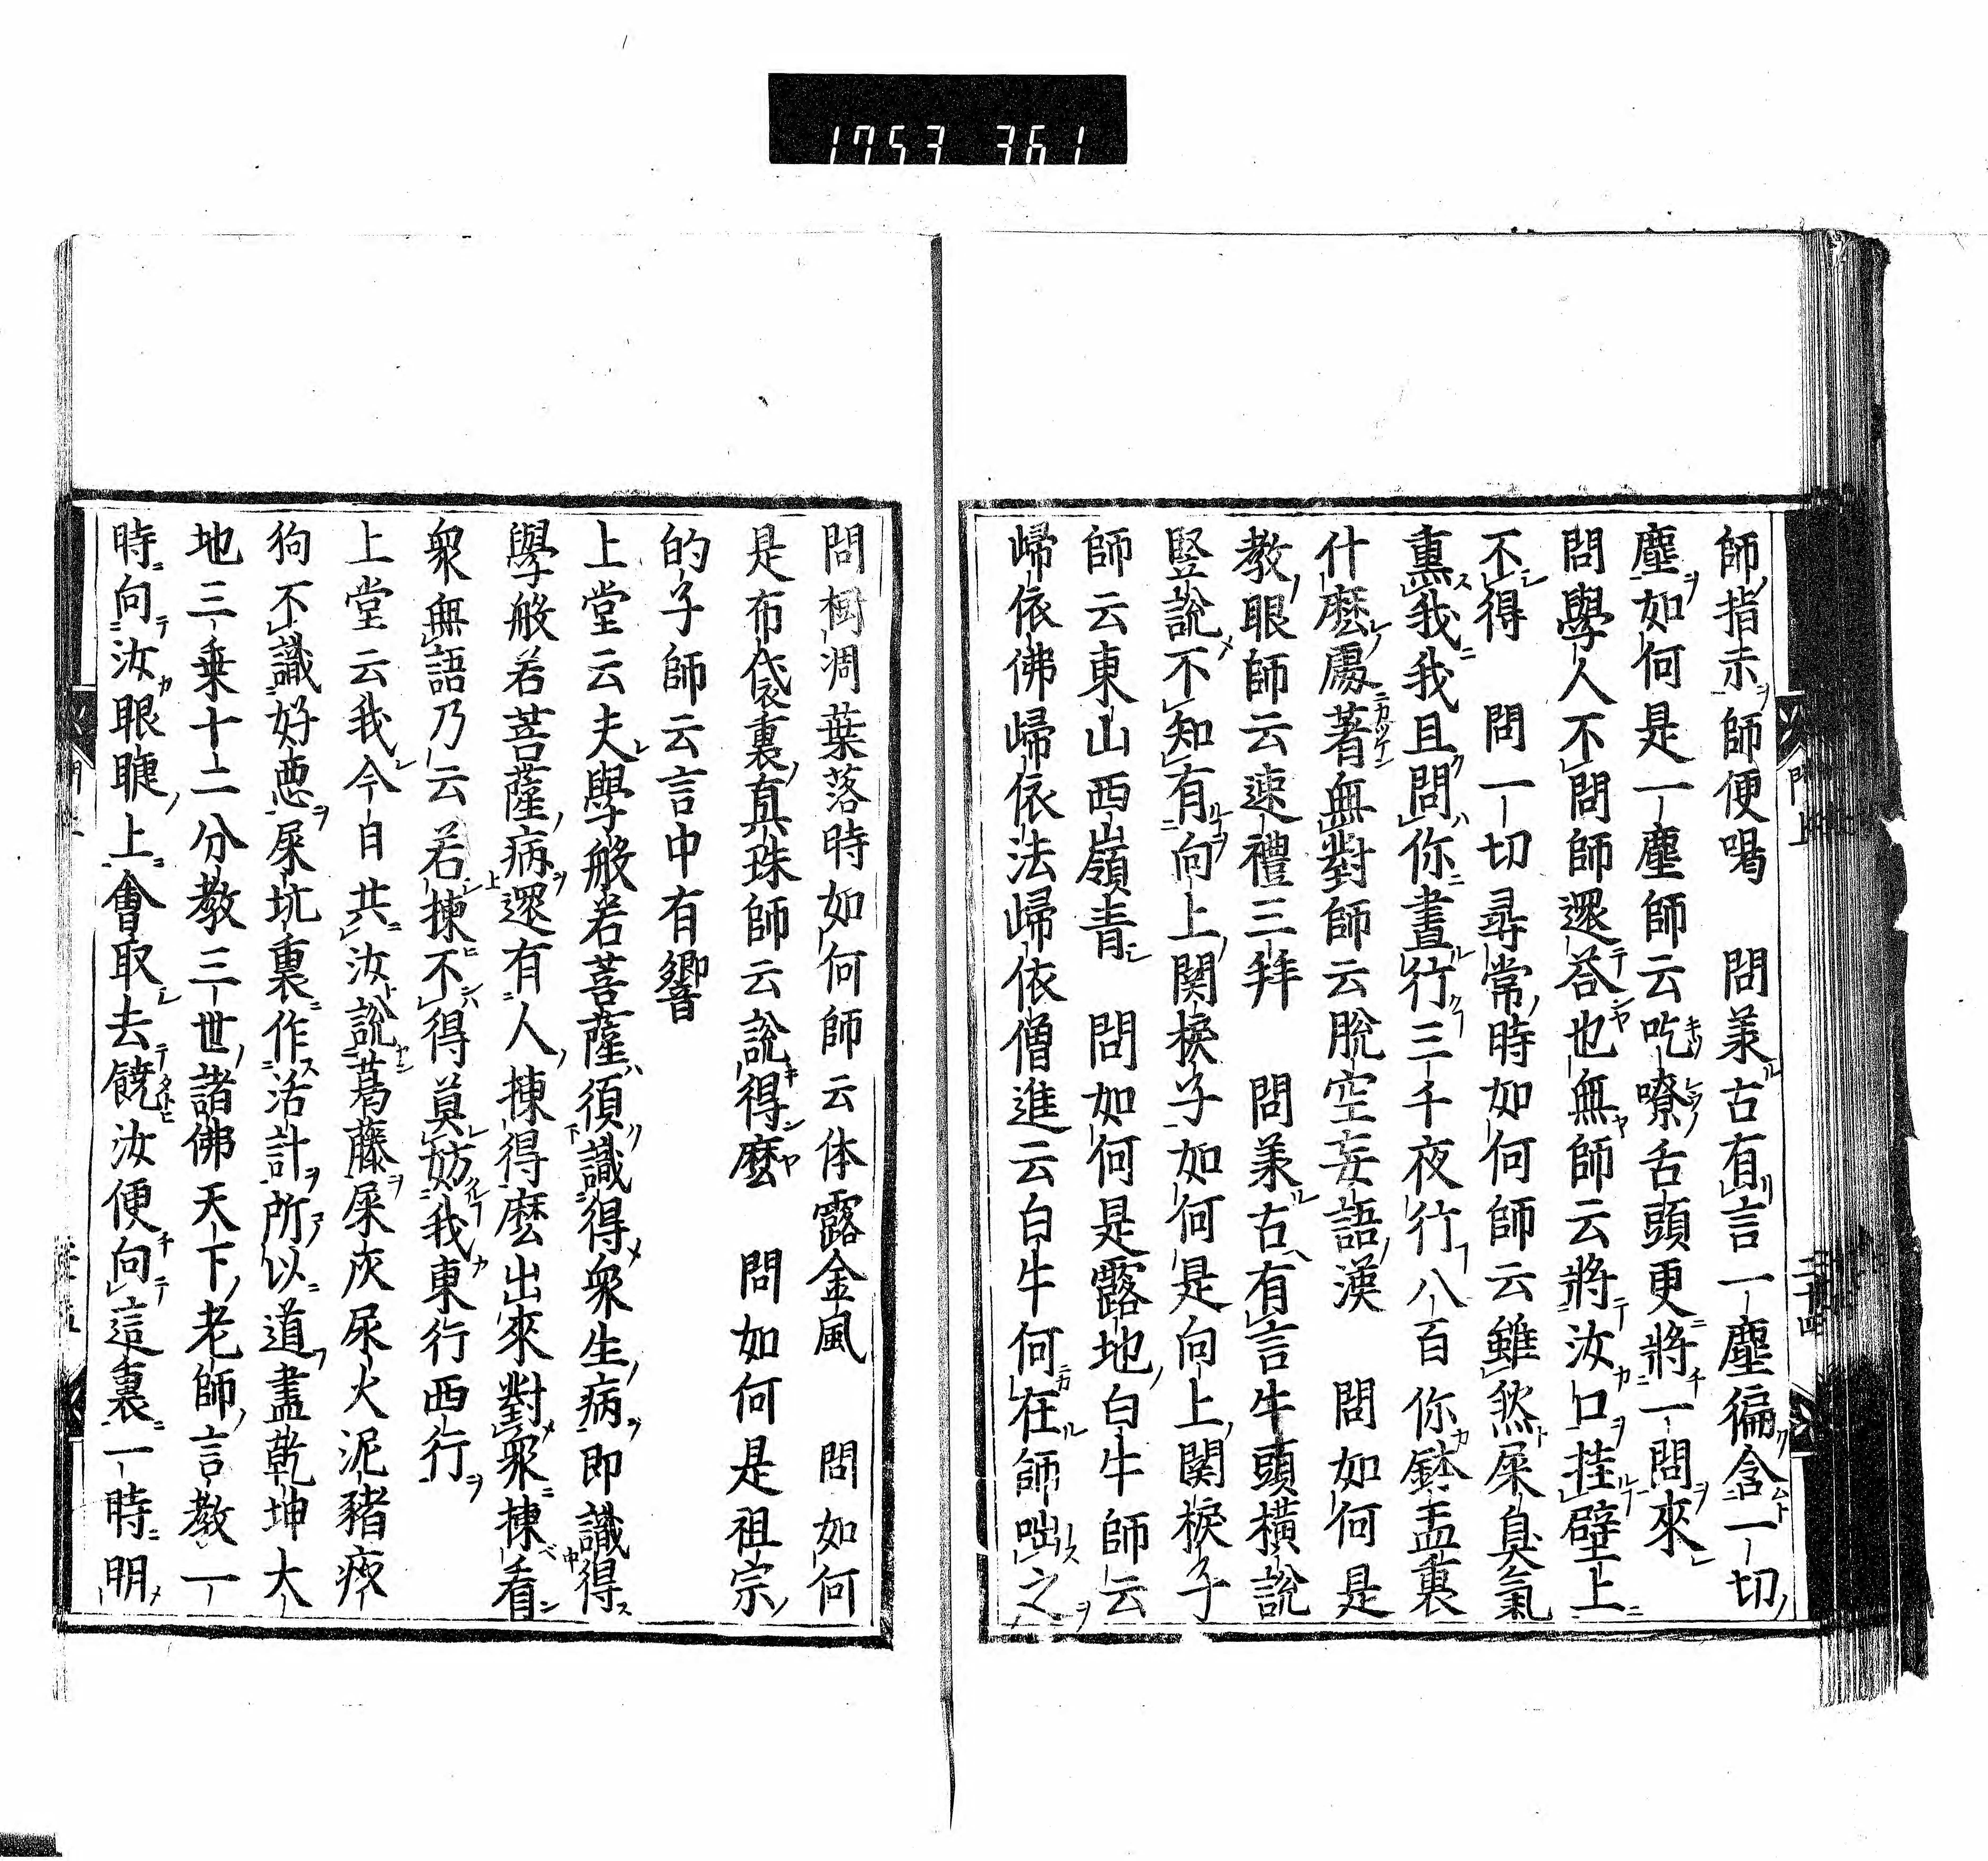 1753 361
師指示師便喝　問羕古有言一塵徧含一切
塵如何是一塵師云吃嘹舌頭更將一問來
問學人不問師還荅也無師云將汝口挂壁上
不得　問一切尋常時如何師云雖然屎臭氣
熏我我且問你晝行三千夜行八百你鉢盂裏
什麼處著無對師云脫空妄語漢　問如何是
教眼師云速禮三拜　問羕古有言牛頭橫說
竪說不知有向上関棙子如何是向上關棙子
師云東山西嶺青　問如何是露地白牛師云
歸依佛歸依法歸依僧進云白牛何在師咄之
問樹凋葉落時如何師云体露金風　問如何
是布袋裏真珠師云說得麼　問如何是祖宗
的子師云言中有響
上堂云夫學般若菩薩須識得衆生病即識得
學般若菩薩病還有人揀得麼出來對衆揀看
衆無語乃云若揀不得莫妨我東行西行
上堂云我今日共汝說葛藤屎灰尿火泥豬疥
狗不識好惡屎坑裏作活計所以道盡乾坤大
地三乗十二分教三世諸佛天下老師言教一
時向汝眼睫上會取去饒汝便向這裏一時明